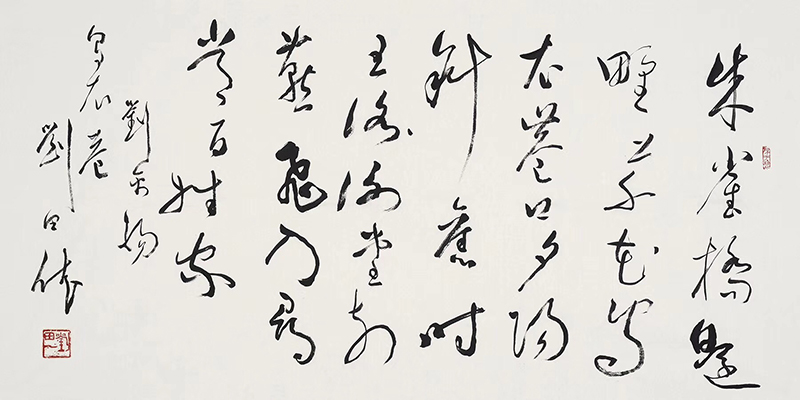 朱雀橋邊
野草花烏
衣巷口夕陽
斜舊時
王謝堂前
燕飛入尋
常百姓家
劉禹錫
烏衣巷
劉田依